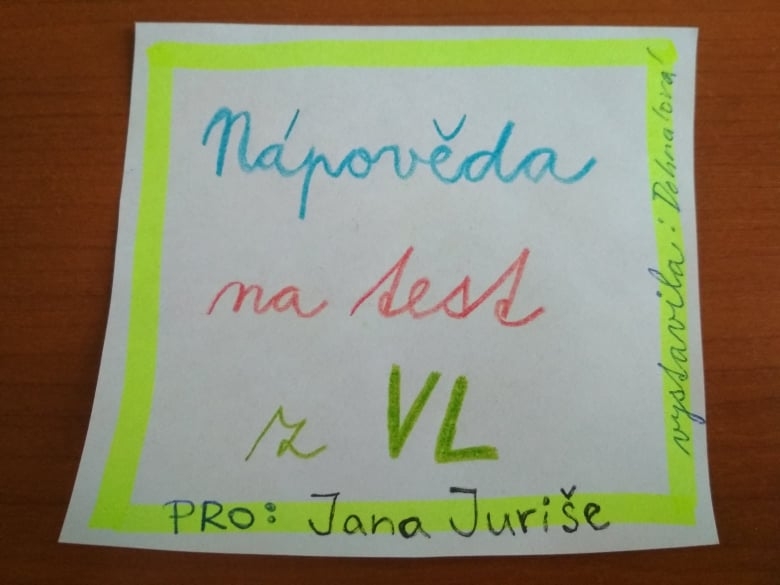 Nápověda
na test
z VL
PRO: Jana Juriše
vystavila: Dohnalová